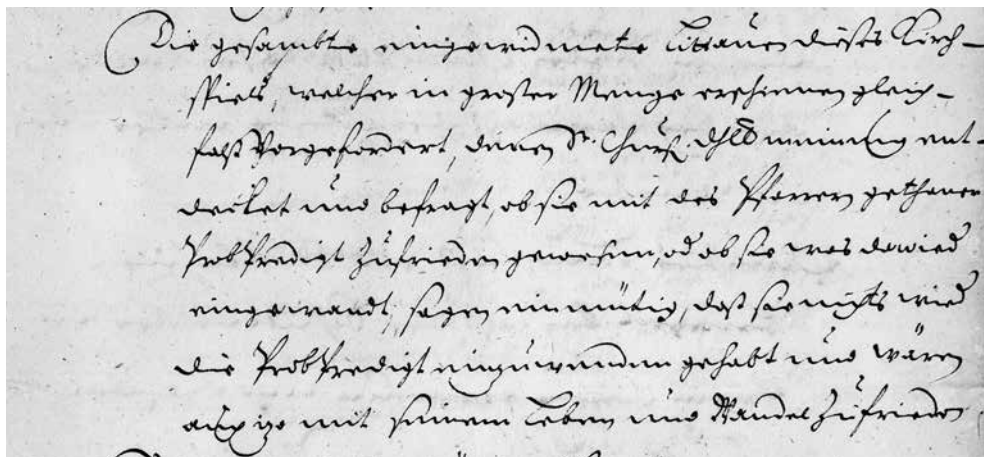 Die gesambte eingewidmete Littauen dieses Kirch-
spiels, welcher in großer Menge erschienen gleich-
falß Vorgefordert, denen Sr. Churf. dhl meinung ent-
decket und befragt, ob sie mit des Pfarren gethaner
ProbPredigt Zufrieden gewesen, od ob sie was dawied
eingewandt, sagen einmütig, daß sie nichts wied
die ProbPredigt einzuwenden gehabt und wären
auch mit seinem Leben und Wandel Zufrieden